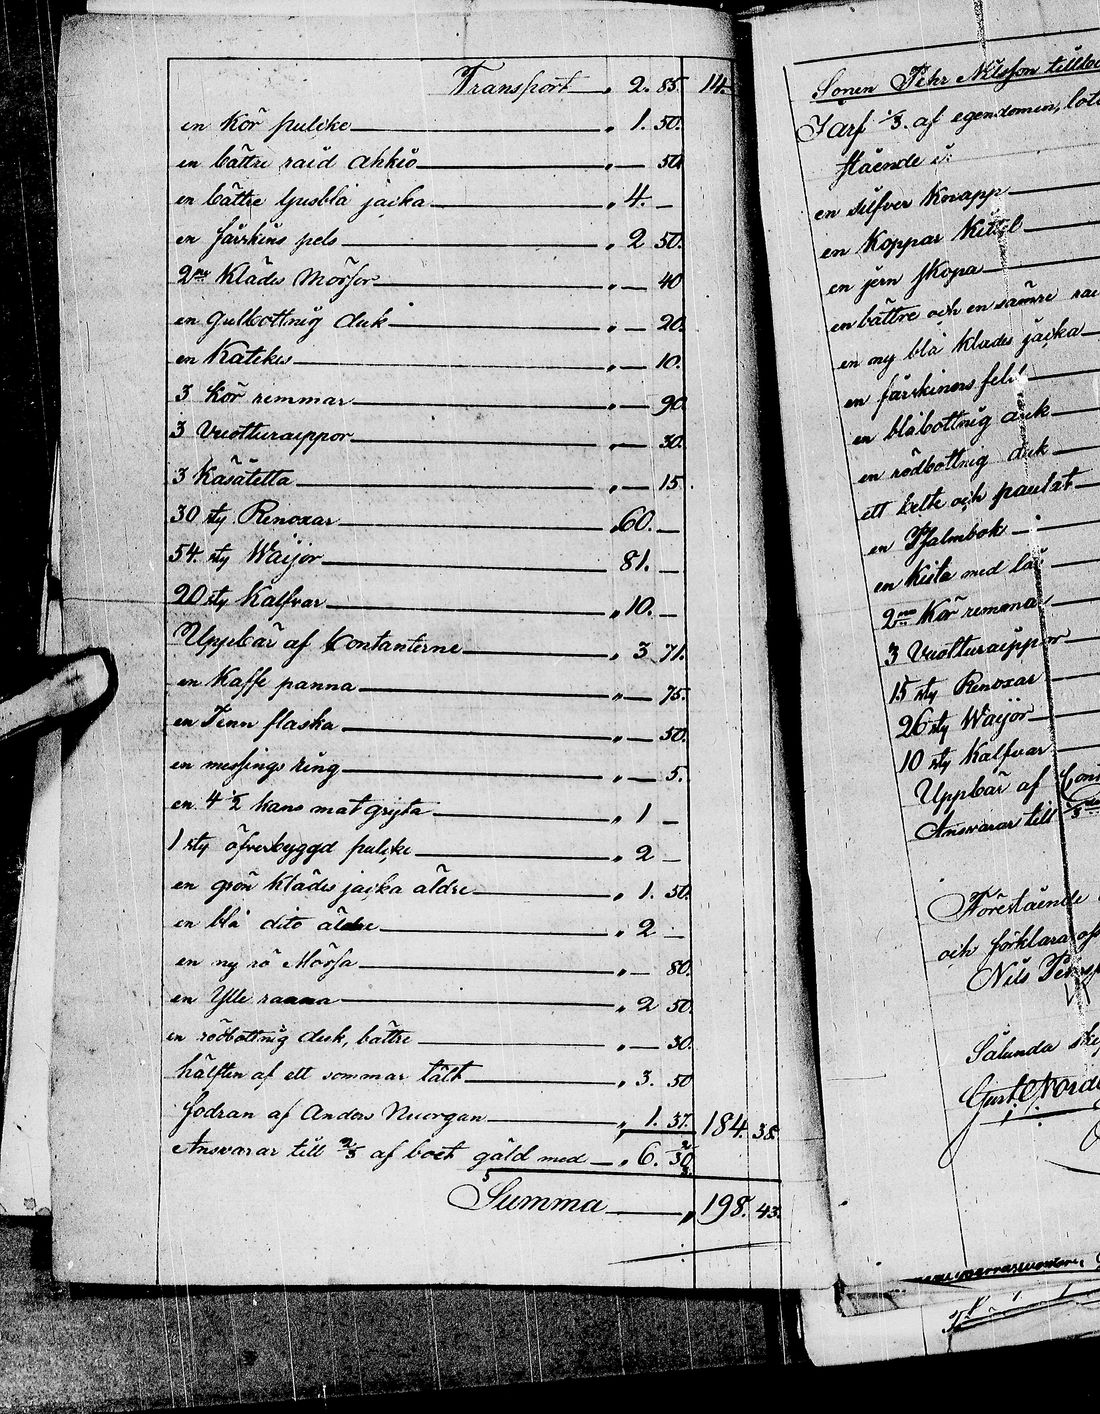 Transport „ 2. 85. 14.
en Kör pulcke „ 1. 50.
en bättre raid Ahkio „ — 50.
en bättre ljusblå jacka „ 4. —
en fårskins pels „ 2 50.
2ne Klädes Mössor „ — 40
en gulbottnig duk „ — 20.
en Katekes „ — 10.
3 Kör remmar „ — 90.
3 Vuolturaippor „ — 30.
3 Kasätetta „ — 15.
30 sty Renoxar „ 60. —
54. sty Waijor 81. —
20 sty Kalfvar „ 10. —
Uppbär af Contanterne „ 3 71.
en Kaffe panna „ — 75.
en Tenn flaska „ — 50.
en messings ring „ — 5.
en 4 1/2 kans mat gryta „ 1 —
1 sty öfverbyggd pulcke „ 2 —
en grön Klädes jacka äldre „ 1. 50.
en blå dito äldre „ 2 —
en ny rö Mössa „ — 80.
en Ylle ranna „ 2 50.
en rödbottnig duk, bättre „ — 30.
hälften af ett sommar tält „ 3. 50
fodran af Anders Nuorgan „ 1. 37. 184. 38.
Answarar till 2/3 af boets gäld med „ 6. 30 2/3.
Summa „ 198. 43.
Sonen Pehr Nilsson
I arf 1/3. af egendomen,
stående i:
en silfver Knapp
en Koppar Kittel
en jern skopa
en bättre och en sämre
en ny blå klädes jacka
en fårskinns fell
en blåbottnig duk
en rödbottnig duk
ett belte och paulat
en Psalmbok
en Kista med lås
2ne Kör remmar
3 Vuolturaippor
15 sty Renoxar
26 sty Waijor
10 sty Kalfvar
Uppbär af
Answarar till
Förestående
och förklara
Nils
Sålunda
Gust Norde